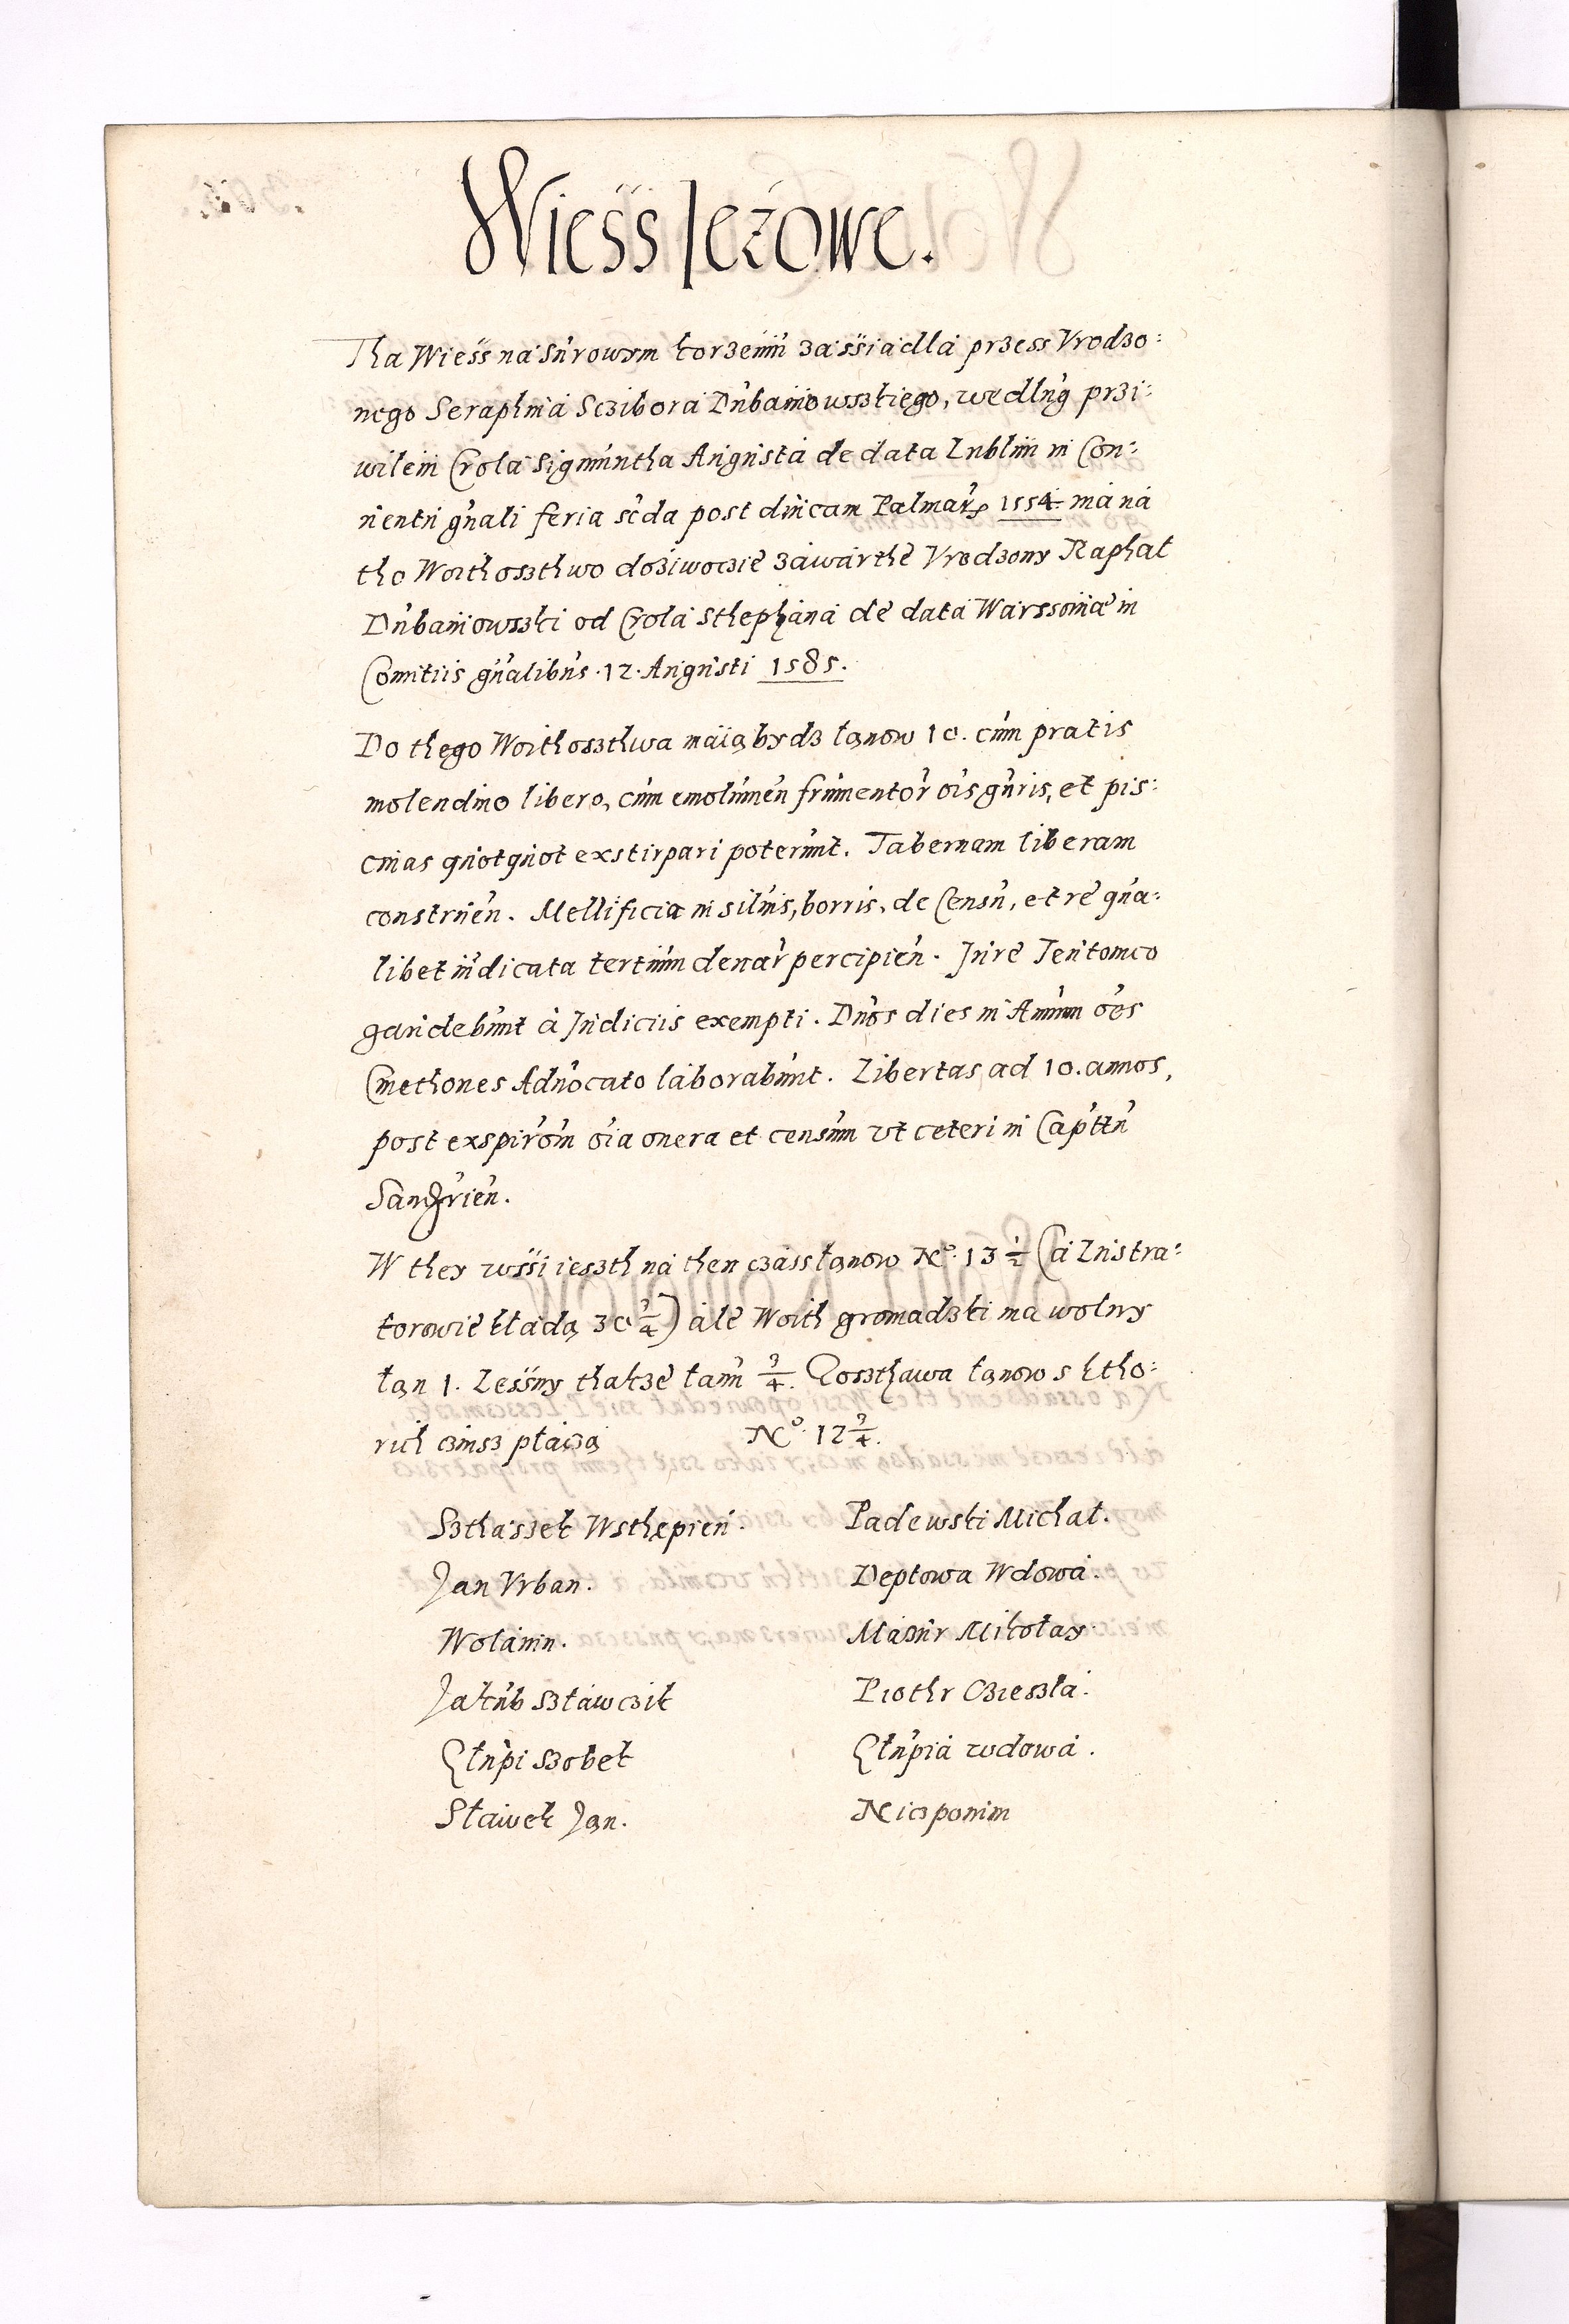 Wiess Ieżowe.
Tha Wiess na surowym korzeniu zassiadla przess Vrodzo:
nego Seraphina Sczibora Dubaniowszkiego, wedlug przi:
wileiu Crola Sigmuntha Augusta de data Lublini in Con:
uentu gnali feria scda post dnicam Palmar 1554. ma na
tho Woithoszthwo doziwoczie zawarthe Vrodzony Raphał
Dubaniowszki od Crola Sthephana de data Warssouiae in
Comitiis gnalibus 12. Augusti 1585.
Do thego Woithoszthwa maią bydz łanow 10. cum pratis
molendino libero, cum emolumen frumentor ois gnris, et pis:
cinas quotquot exstirpari poterunt. Tabernam liberam
construen. Mellificia in siluis, borris, de Censu, et re qua:
libet iudicata tertium denar percipien. Iure Teutonico
gaudebunt à Iudiciis exempti. Duos dies in Annum oes
Cmethones Aduocato laborabunt. Libertas ad 10. annos,
post exspirom oia onera et censum vt ceteri in Capttu
W they wssi ieszth na then czass łanow No. 13 1/2 (a Lustra:
torowie kładą 30 3/4) ale Woith gromadzki ma wolny
łan 1. Lessny thakze łanu 3/4. Zoszthawa łanow s ktho:
rich czinsz płaczą No. 12 3/4.
Szthaszek Wsthępień. Padewski Michał.
Jan Vrban. Deptowa Wdowa.
Wolanin. Mazur Mikołay.
Jakub Szławczik Piothr Czieszla.
Głupi Szobek Głupia wdowa.
Sławek Jan. Niczponim